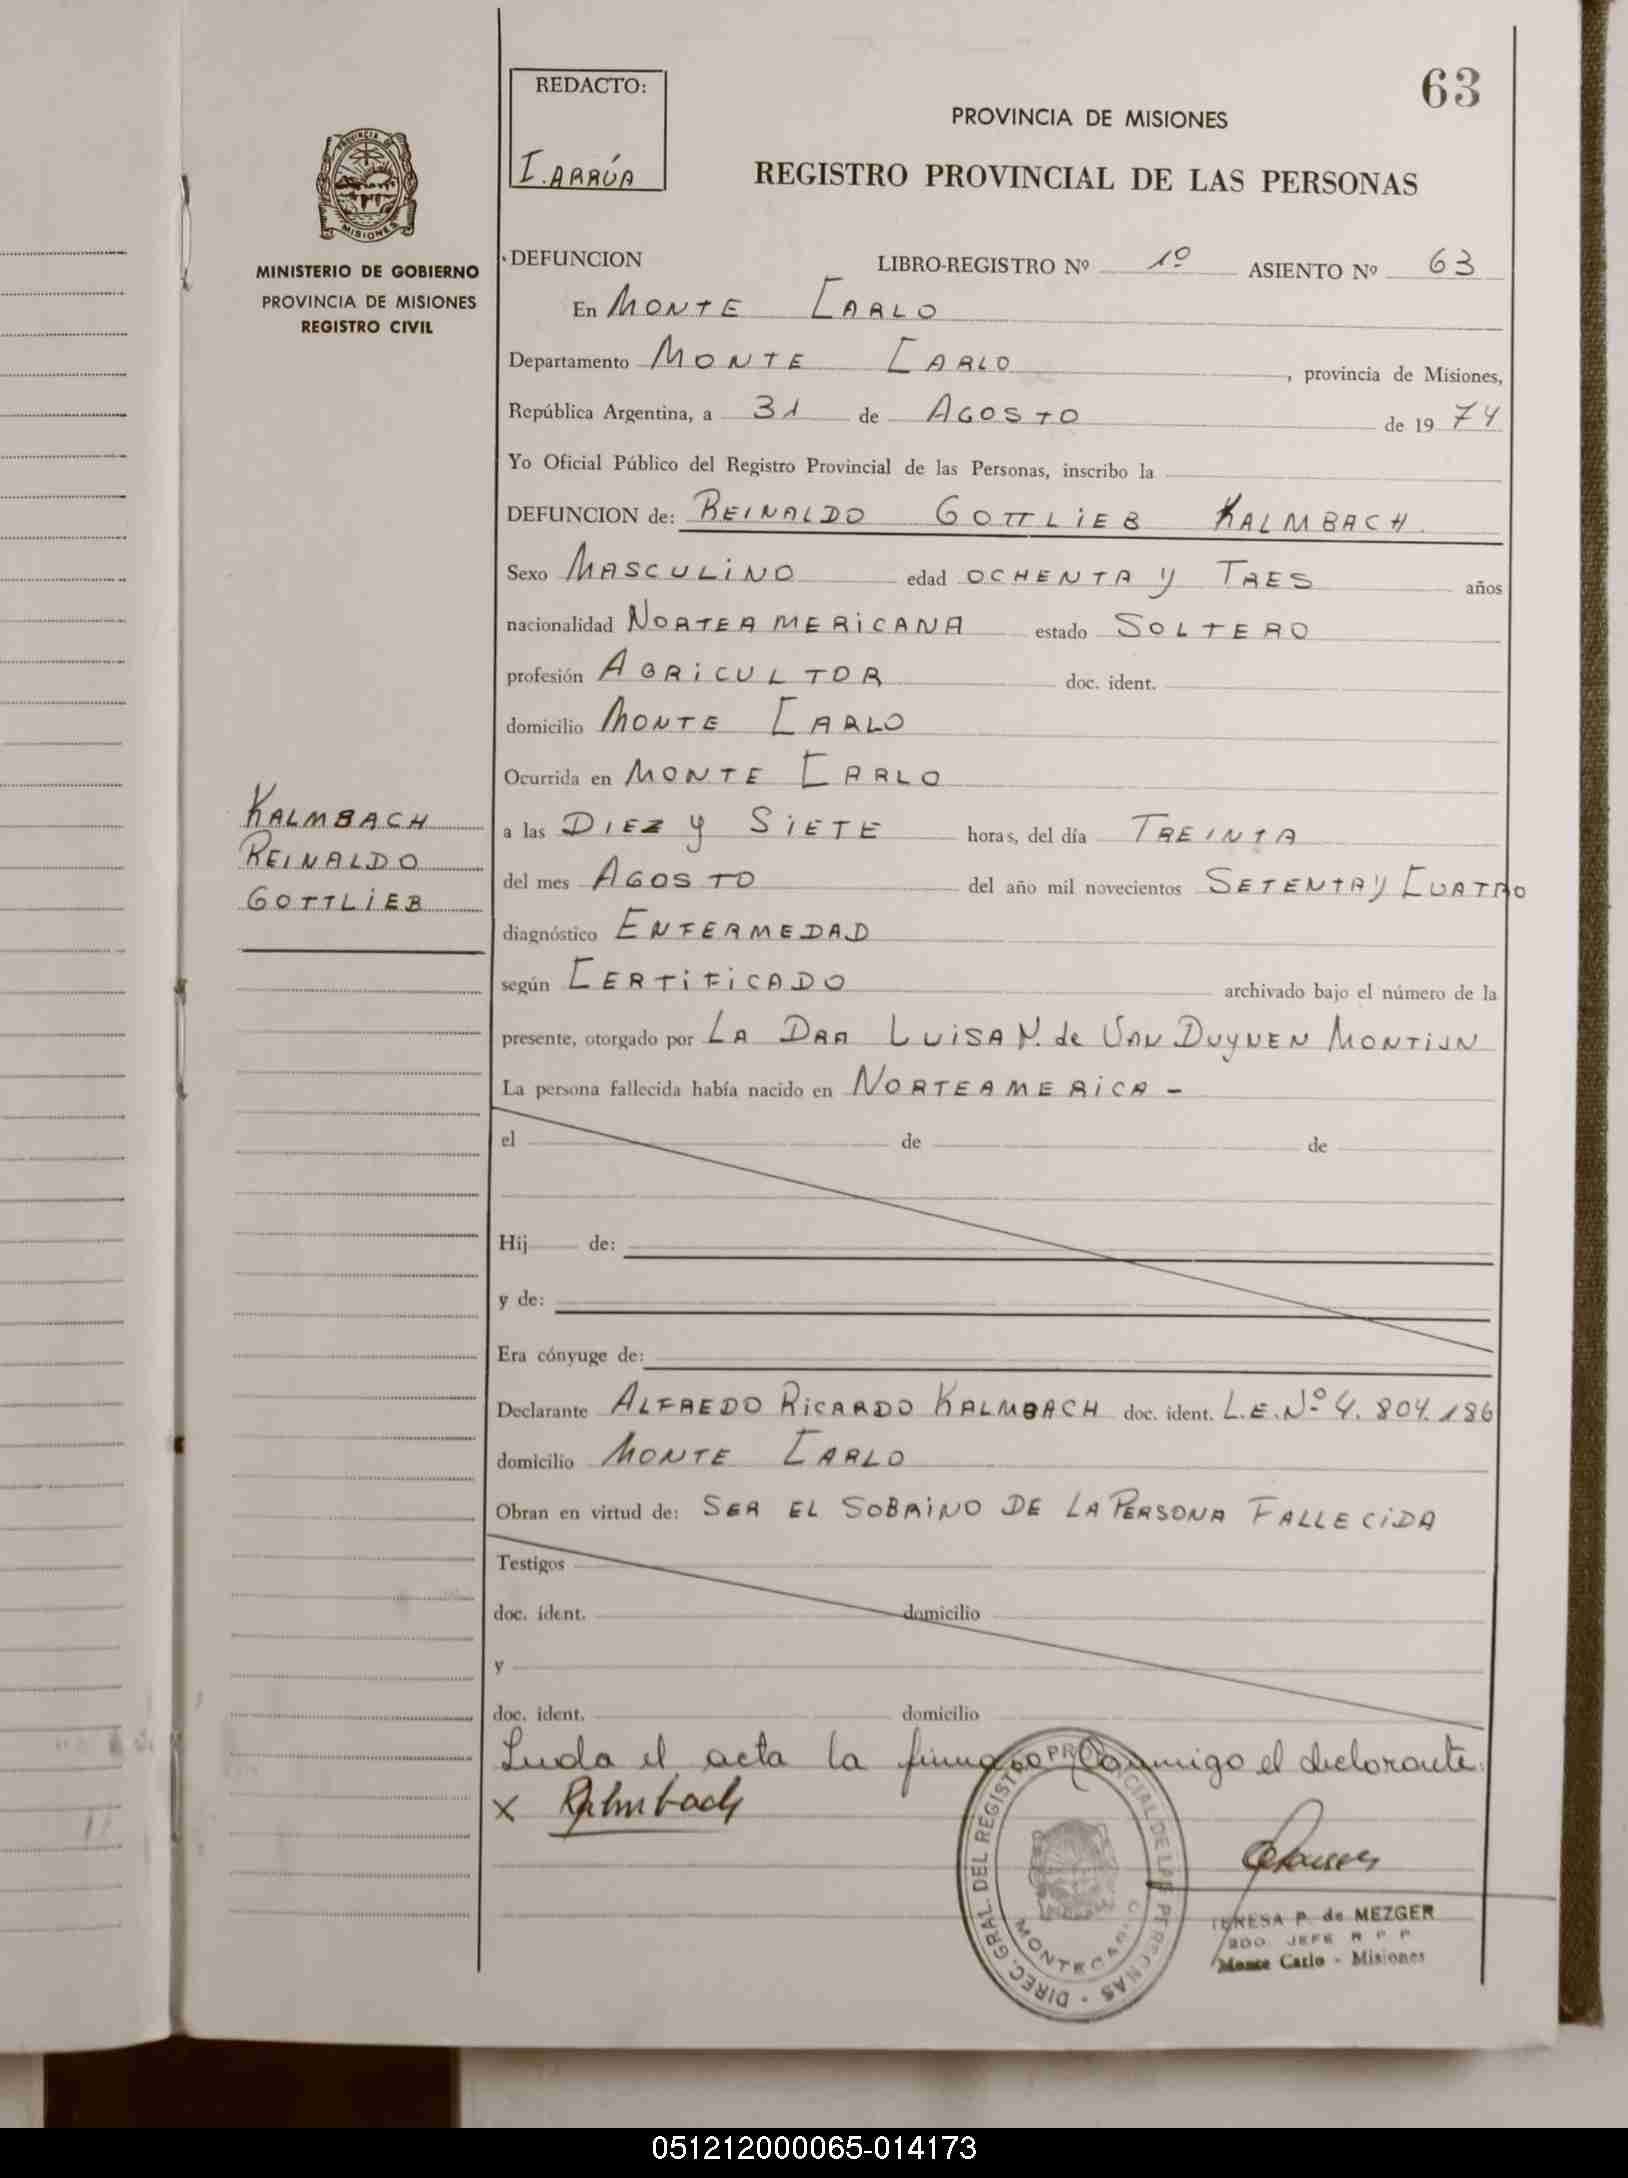 63
REDACTO:
I. ARRÚA
PROVINCIA DE MISIONES
REGISTRO PROVINCIAL DE LAS PERSONAS
PROVINCIA DE
MISIONES
MINISTERIO DE GOBIERNO
PROVINCIA DE MISIONES
REGISTRO CIVIL
DEFUNCION LIBRO-REGISTRO Nº 1º ASIENTO Nº 63
En MONTE CARLO
Departamento MONTE CARLO, provincia de Misiones,
República Argentina, a 31 de AGOSTO de 1974
Yo Oficial Público del Registro Provincial de las Personas, inscribo la
DEFUNCION de: REINALDO GOTTLIEB KALMBACH
Sexo MASCULINO edad OCHENTA y TRES años
nacionalidad NORTEAMERICANA estado SOLTERO
profesión AGRICULTOR doc. ident.
domicilio MONTE CARLO
Ocurrida en MONTE CARLO
KALMBACH
REINALDO
GOTTLIEB
a las DIEZ y SIETE horas, del día TREINTA
del mes AGOSTO del año mil novecientos SETENTA y CUATRO
diagnóstico ENFERMEDAD
según CERTIFICADO archivado bajo el número de la
presente, otorgado por LA DRA LUISA N. de VAN DUYNEN MONTIJN
La persona fallecida había nacido en NORTEAMERICA -
el de de
Hij de:
y de:
Era cónyuge de:
Declarante ALFREDO RICARDO KALMBACH doc. ident. L.E. Nº 4.804.186
domicilio MONTE CARLO
Obran en virtud de: SER EL SOBRINO DE LA PERSONA FALLECIDA
Testigos
doc. ident. domicilio
y
doc. ident. domicilio
Leida el acta la firma Conmigo el declarante.
x Kalmbach
DIREC. GRAL. DEL REGISTRO PROVINCIAL DE LAS PERSONAS
MONTECARLO
TERESA P. de MEZGER
2DO. JEFE R P P
Monte Carlo - Misiones
051212000065-014173